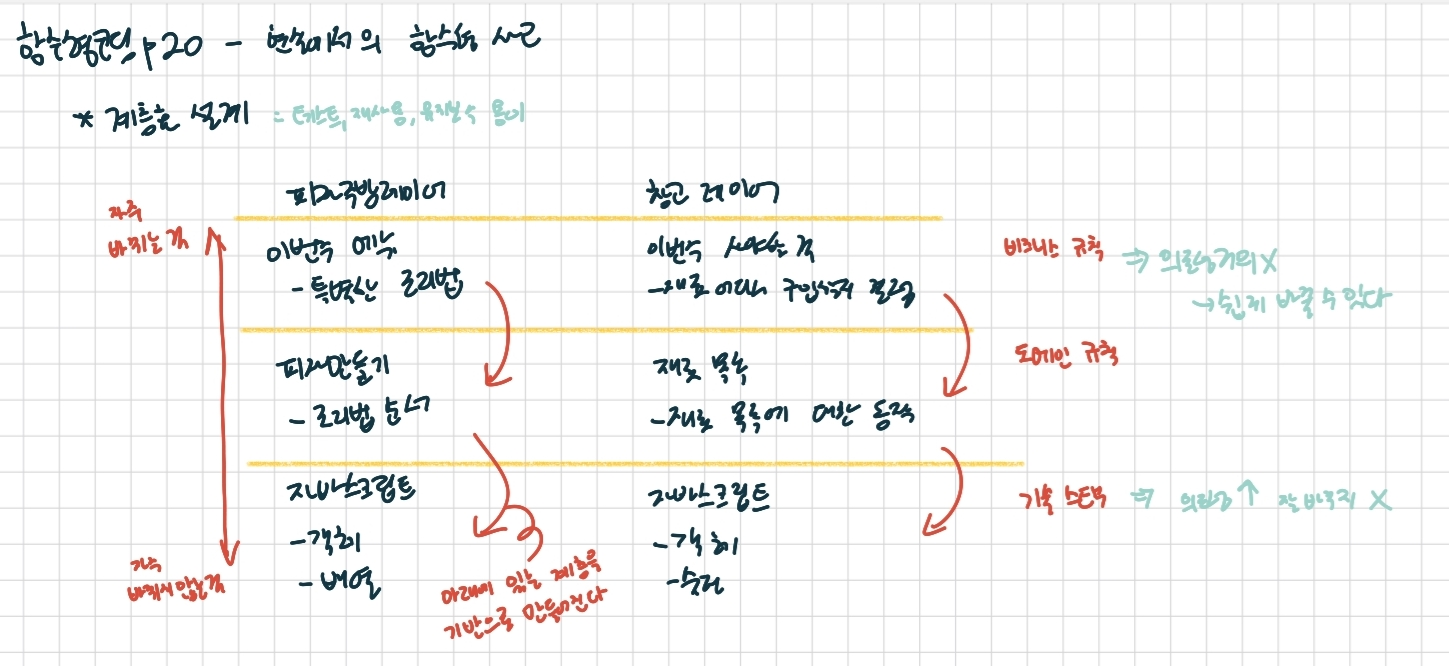 함수형코딩 p20 - 현실에서의 함수형 사고
* 계층형 설계 = 테스트, 재사용, 유지보수 용이
피자주방레이어
창고 레이어
자주
바뀌는 것
이번주 메뉴
- 특별한 조리법
이번주 사야하는 것
- 재료 어디서 구입할지 결정
비즈니스 규칙 ⇒ 의존성거의 X
→ 쉽게 바꿀 수 있다
피자만들기
- 조리법 순서
재료 목록
- 재료 목록에 대한 동작
도메인 규칙
자바스크립트
- 객체
- 배열
자바스크립트
- 객체
- 숫자
기술 스택 ⇒ 의존성 ↑ 잘 바뀌지 X
자주
바뀌지 않는 것
아래에 있는 계층을
기반으로 만들어진다